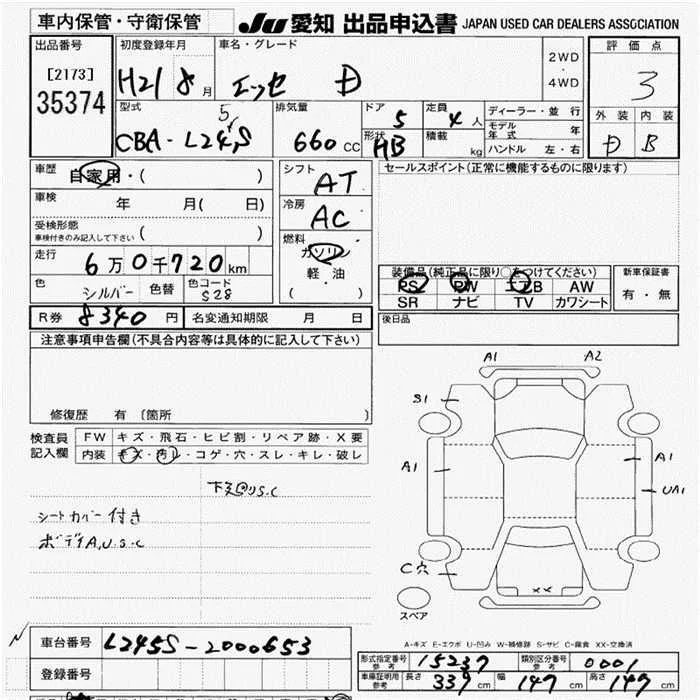 車内保管・守衛保管
JU 愛知 出品申込書 JAPAN USED CAR DEALERS ASSOCIATION
出品番号
[2173]
35374
初度登録年月
H21 8 月
車名・グレード
エッセ D
2WD
・
4WD
評価点
3
外装 内装
D B
型式
5
CBA-L24S
排気量
660 CC
ドア
5
形状
HB
定員
4 人
積載
kg
ディーラー・並行
モデル年式 年
ハンドル 左・右
車歴
自家用・( )
車検
年 月( 日)
受検形態
車検付きのみ記入して下さい ( )
走行
6万0千720km
色
シルバー
色替
色コード
S28
R券 8340 円
名変通知期限 月 日
シフト
AT
冷房
AC
燃料
ガソリン
軽・油
( )
セールスポイント(正常に機能するものに限ります)
装備品(純正品に限り○をつけてください)
PS PW エアB AW
SR ナビ TV カワシート
新車保証書
有・無
後日品
注意事項申告欄(不具合内容等は具体的に記入して下さい)
修復歴 有 〔箇所 〕
検査員記入欄
FW キズ・飛石・ヒビ割・リペア跡・X要
内装 キズ・汚レ・コゲ・穴・スレ・キレ・破レ
シートカバー付き
ボデイA,U.S.C
A1 A2
S1
A1
A1
UA1
C穴
XX
スペア
A-キズ E-エクボ U-凹み W-補修跡 S-サビ C-腐食 XX-交換済
車台番号 L245S-2000653
登録番号
形式指定番号 参考 15237
類別区分番号 参考 0001
車庫証明用 参考 長さ 339 cm 幅 147 cm 高さ 147 cm